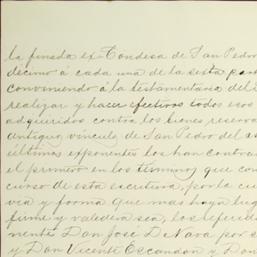 la finada ex-Condesa de San Pedro
décimo á cada una de la sesta par
conveniendo á la testamentaria del
realizar y hacer efectivos todos esos
adquiridos contra los bienes reserva
antiguo vínculo de San Pedro del
últimos exponentes los han contra
el primero en los términos que con
curso de esta escritura, por la cu
via y forma que mas haya lug
firme y valedera sea, los referido
mente Don José De Nava por s
y Don Vicente Escandon y Don